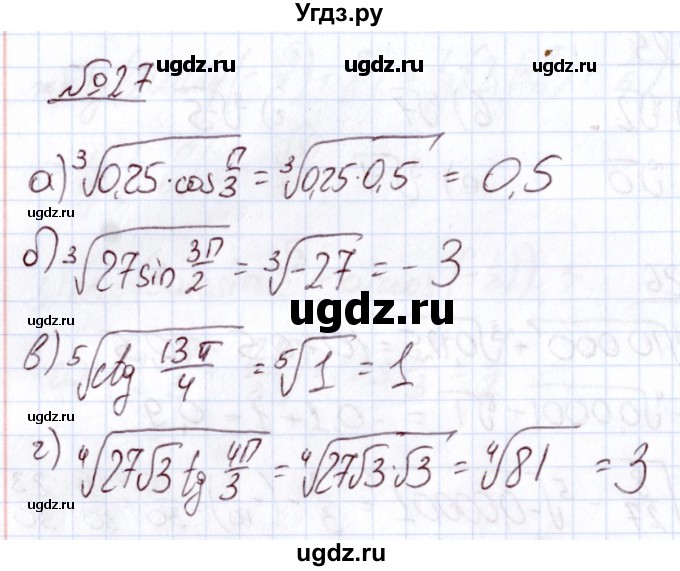 Угдз.ру
№27
ugdz.ru ugdz.ru ugdz.ru
а) ∛(0,25·cos π/3) = ∛(0,25·0,5) = 0,5
ugdz.ru
б) ∛(27sin 3π/2) = ∛(-27) = -3
ugdz.ru
ugdz.ru
в) ⁵√(ctg 13π/4) = ⁵√1 = 1
ugdz.ru
г) ⁴√(27√3 tg 4π/3) = ⁴√(27√3·√3) = ⁴√81 = 3
ugdz.ru
ugdz.ru